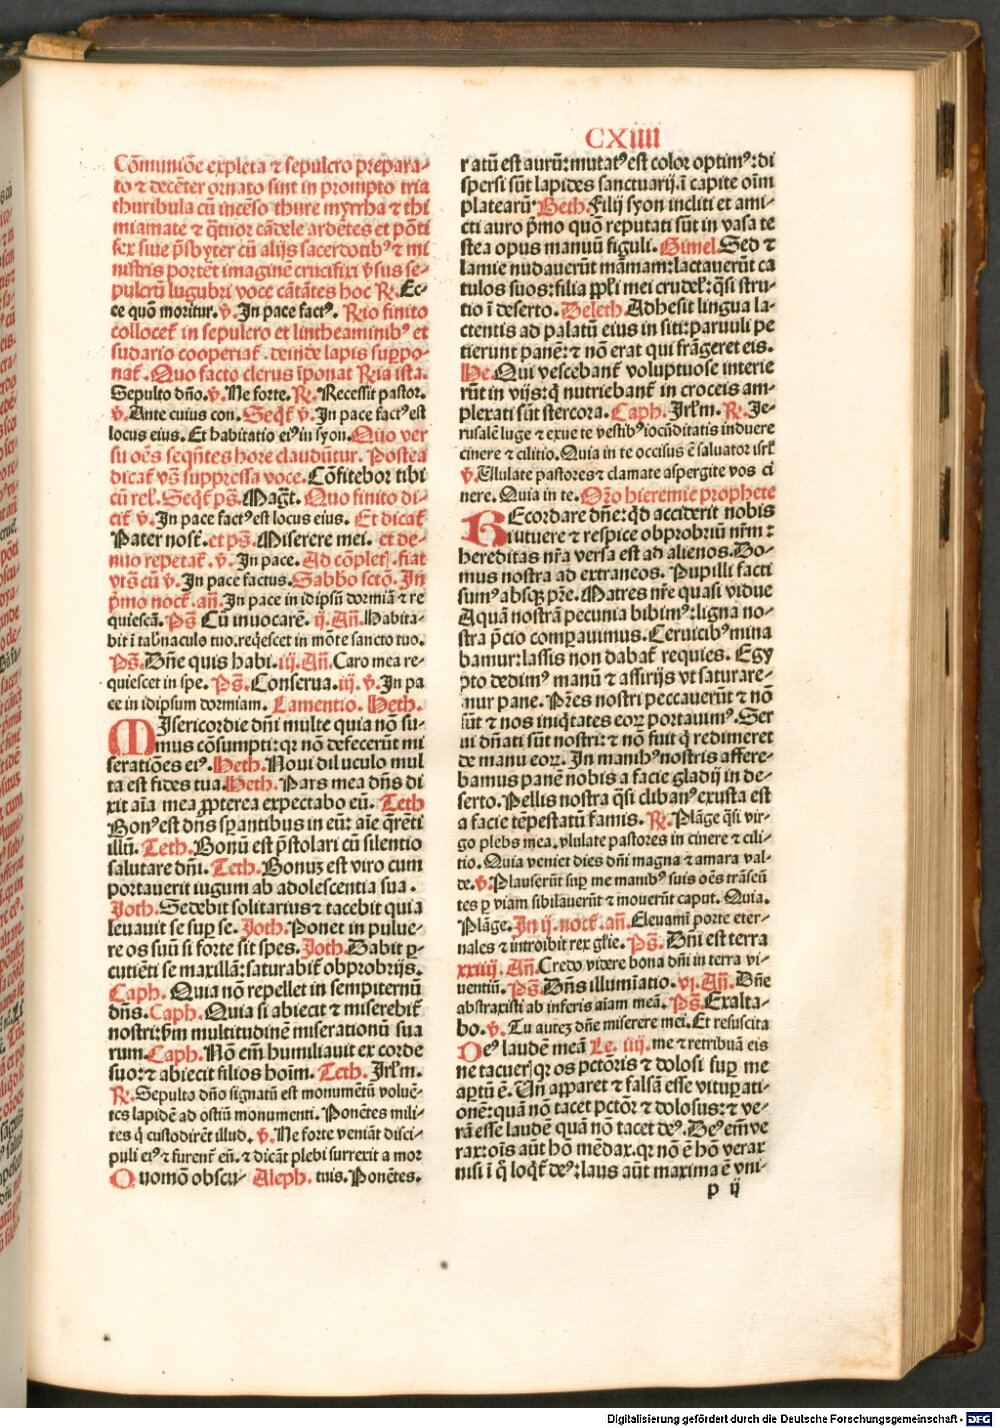 CXIIII
Cōmuniōe expleta ⁊ sepulcro prepara-
to ⁊ decēter ornato sint in prompto tria
thuribula cū incēso thure myrrha ⁊ thi
miamate ⁊ q̄tuor cādele ardētes et pōti
fex siue p̄sbyter cū alijs sacerdotibꝰ ⁊ mi
nistris portēt imaginē crucifixi v̄sus se-
pulcrū lugubri voce cātātes hoc ℞. Ec-
ce quō moritur. ℣. In pace factꝰ. Rio finito
collocet̄ in sepulcro et lintheaminibꝰ et
sudario cooperiat̄. deinde lapis suppo-
nat̄. Quo facto clerus īponat Ria ista.
Sepulto dn̄o. ℣. Ne forte. ℞. Recessit pastor.
℣. Ante cuius con. Seqt̄ ℣. In pace factꝰ est
locus eius. Et habitatio eiꝰ in syon. Quo ver
su oēs seqn̄tes hore claudūtur. Postea
dicat̄ vs̄ suppressa voce. Cōfitebor tibi
cū rel. Seqt̄ ps̄. Magt̄. Quo finito di-
cit̄ ℣. In pace factꝰ est locus eius. Et dicat̄
Pater nost̄. et ps̄. Miserere mei. et de-
nuo repetat̄. ℣. In pace. Ad cōplet̄. fiat
vts̄ cū ℣. In pace factus. Sabbo sctō. In
p̄mo noct̄. an̄. In pace in idipsū dormiā ⁊ re
quiescā. Ps̄ Cū inuocarē. ij. An̄. Habita-
bit ī tabn̄aculo tuo. reqēscet in mōte sancto tuo.
Ps̄. Dn̄e quis habi. iij. An̄. Caro mea re-
quiescet in spe. Ps̄. Conserua. iij. ℣. In pa
ce in idipsum dormiam. Lamentio. Heth.
MIsericordie dn̄i multe quia nō su-
mus cōsumpti: qr nō defecerūt mi
seratiōes eiꝰ. Heth. Noui diluculo mul
ta est fides tua. Heth. Pars mea dn̄s di
xit aīa mea ꝓpterea expectabo eū. Teth
Bonꝰ est dn̄s sꝑantibus in eū: aīe q̄rēti
illū. Teth. Bonū est p̄stolari cū silentio
salutare dn̄i. Teth. Bonuȝ est viro cum
portauerit iugum ab adolescentia sua.
Joth. Sedebit solitarius ⁊ tacebit quia
leuauit se suꝑ se. Joth. Ponet in pulue-
re os suū si forte sit spes. Joth. Dabit ꝑ-
cutiēti se maxillā: saturabit̄ obprobrijs.
Caph. Quia nō repellet in sempiternū
dn̄s. Caph. Quia si abiecit ⁊ miserebit̄
nostri: ẜm multitudinē miserationū sua
rum. Caph. Nō em̄ humiliauit ex corde
suo: ⁊ abiecit filios hoīm. Teth. Jrl̄m.
℞. Sepulto dn̄o signatū est monumētū voluē-
tes lapidē ad ostiū monumenti. Ponētes mili-
tes q̄ custodirēt illud. ℣. Ne forte veniāt disci-
puli eiꝰ ⁊ furent̄ eū. ⁊ dicāt plebi surrexit a mor
Quomō obscu- Aleph. tuis. Ponētes.
ratū est aurū: mutatꝰ est color optimꝰ: di
spersi sūt lapides sanctuarij. ī capite oīm
platearū. Beth. Filij syon incliti et ami-
cti auro p̄mo quō reputati sūt in vasa te
stea opus manuū figuli. Gimel. Sed ⁊
lamie nudauerūt māmam: lactauerūt ca
tulos suos: filia ppl̄i mei crudel̄: q̄si stru-
tio ī deserto. Deleth. Adhesit lingua la-
ctentis ad palatū eius in siti: paruuli pe
tierunt panē: ⁊ nō erat qui frāgeret eis.
He. Qui vescebant̄ voluptuose interie
rūt in vijs: q̄ nutriebant̄ in croceis am-
plexati sūt stercora. Caph. Jrl̄m. ℞. Je-
rusalē luge ⁊ exue te vestibꝰ iocūditatis induere
cinere ⁊ cilitio. Quia in te occisus ē saluator isrl̄
℣. Ullulate pastores ⁊ clamate aspergite vos ci
nere. Quia in te. Or̄o hieremie prophete
REcordare dn̄e: qd acciderit nobis
īutuere ⁊ respice obprobriū nr̄m:
hereditas nr̄a versa est ad alienos. Do-
mus nostra ad extraneos. Pupilli facti
sumꝰ absqȝ pr̄e. Matres nr̄e quasi vidue
Aquā nostrā pecunia bibimꝰ: ligna no-
stra p̄cio comꝑauimus. Ceruicibꝰ mina
bamur: lassis non dabat̄ requies. Egy
pto dedimꝰ manū ⁊ assirijs vt saturare-
mur pane. Pr̄es nostri peccauerūt ⁊ nō
sūt ⁊ nos iniq̄tates eoꝝ portauimꝰ. Ser
ui dn̄ati sūt nostri: ⁊ nō fuit q̄ redimeret
de manu eoꝝ. In manibꝰ nostris affere-
bamus panē nobis a facie gladij in de-
serto. Pellis nostra q̄si clibanꝰ exusta est
a facie tēpestatū famis. ℞. Plāge q̄si vir-
go plebs mea. vlulate pastores in cinere ⁊ cili-
tio. Quia veniet dies dn̄i magna ⁊ amara val-
de. ℣. Plauserūt suꝑ me manibꝰ suis oēs trāseū
tes ꝑ viam sibilauerūt ⁊ mouerūt caput. Quia.
Plāge. In ij. noct̄. an̄. Eleuamī porte eter-
nales ⁊ introibit rex gl̄ie. Ps̄. Dn̄i est terra
xxiiij. An̄. Credo videre bona dn̄i in terra vi-
uentiū. Ps̄ Dn̄s illumīatio. vj. An̄. Dn̄e
abstraxisti ab inferis aīam meā. Ps̄. Exalta-
bo. ℣. Tu autez dn̄e miserere mei. Et resuscita
Deꝰ laudē meā Le. iiij. me ⁊ retribuā eis
ne tacuer̄: qr os pctōris ⁊ dolosi suꝑ me
aꝑtū ē. Un̄ apparet ⁊ falsā esse vituꝑati-
onē: quā nō tacet pctōr ⁊ dolosus: ⁊ ve-
rā esse laudē quā nō tacet deꝰ. Deꝰ em̄ ve
rax: oīs aūt hō mēdax. qr nō ē hō verax
nisi ī q̄ loqt̄ deꝰ: laus aūt maxima ē vni-
p ij
Digitalisierung gefördert durch die Deutsche Forschungsgemeinschaft - DFG